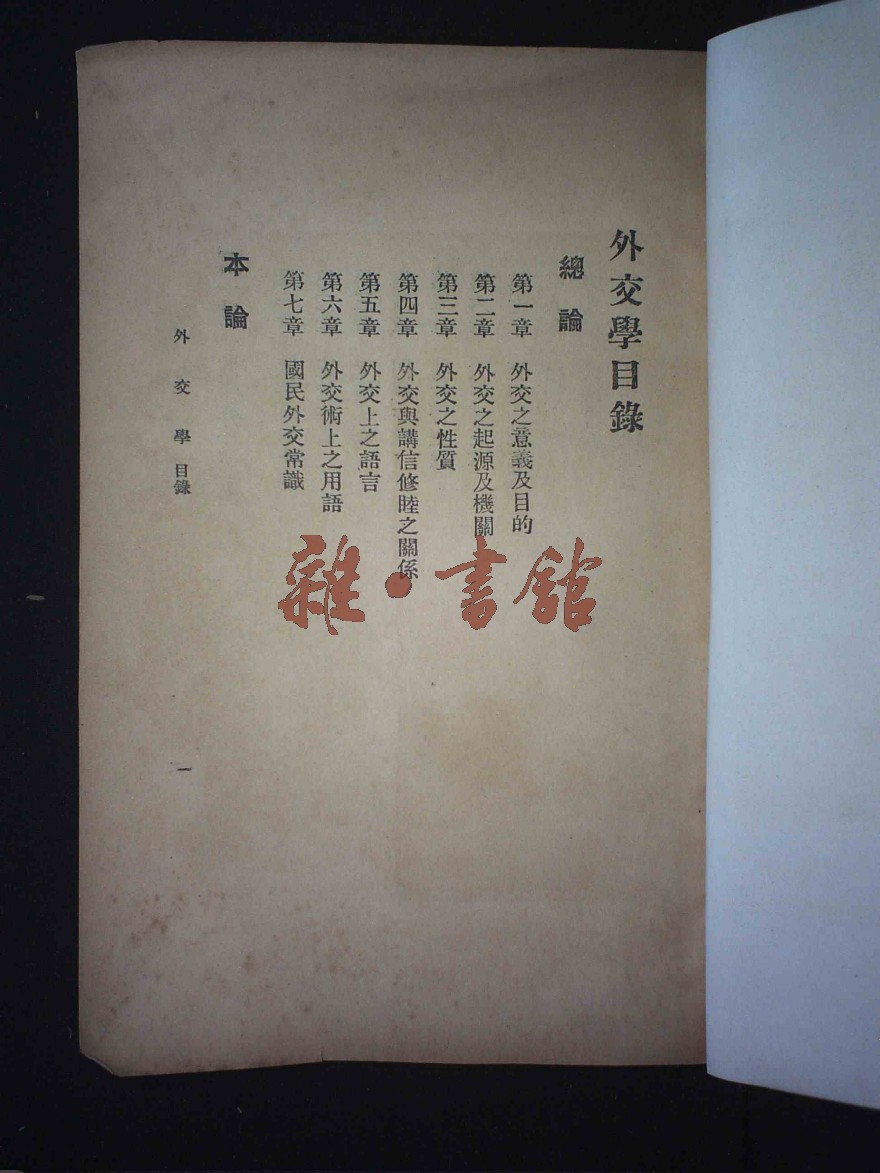 外交學目錄
總論
第一章 外交之意義及目的
第二章 外交之起源及機關
第三章 外交之性質
第四章 外交與講信修睦之關係
第五章 外交上之語言
第六章 外交術上之用語
第七章 國民外交常識
本論
外交學 目錄
一
雜·書館